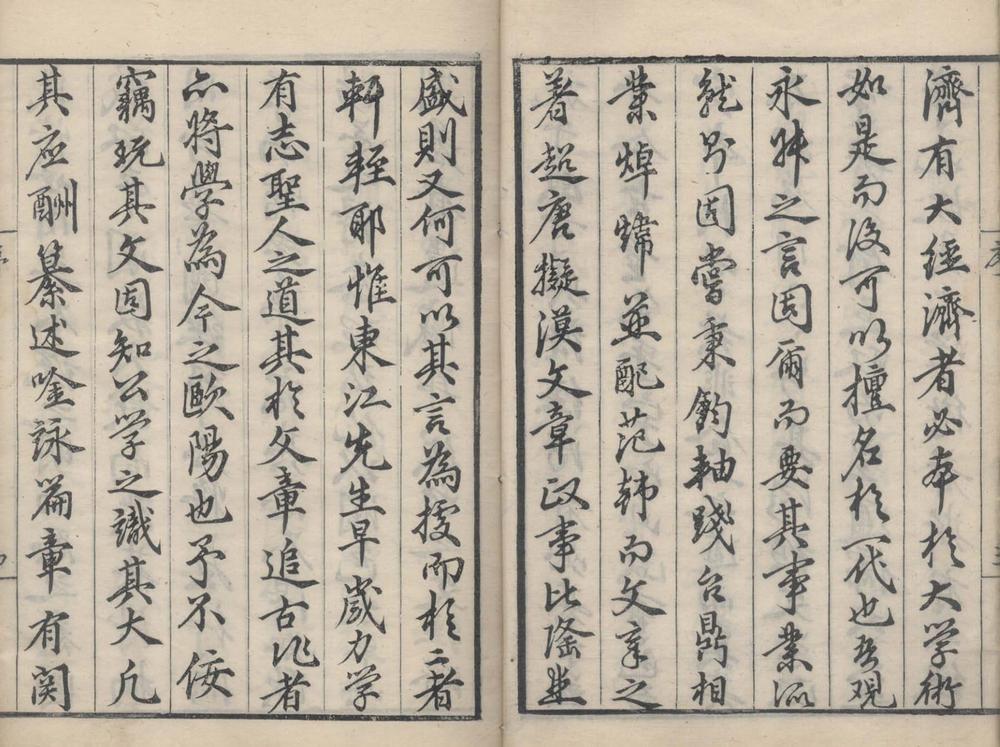 濟有大經濟者必本於大学術
如是而後可以擅名於一代也吾观
永叔之言固爾而要其事業
就别固嘗秉鈞軸踐台鼎相
業焯煒並配范韩而文章之
著超唐擬漢文章政事比隆並
盛則又何可以其言為據而於二者
軒輊耶惟東江先生早歲力学
有志聖人之道其於文章追古作者
亦將學為今之歐陽也予不佞
竊玩其文固知公学之識其大凡
其应酬纂述唫詠篇章有関